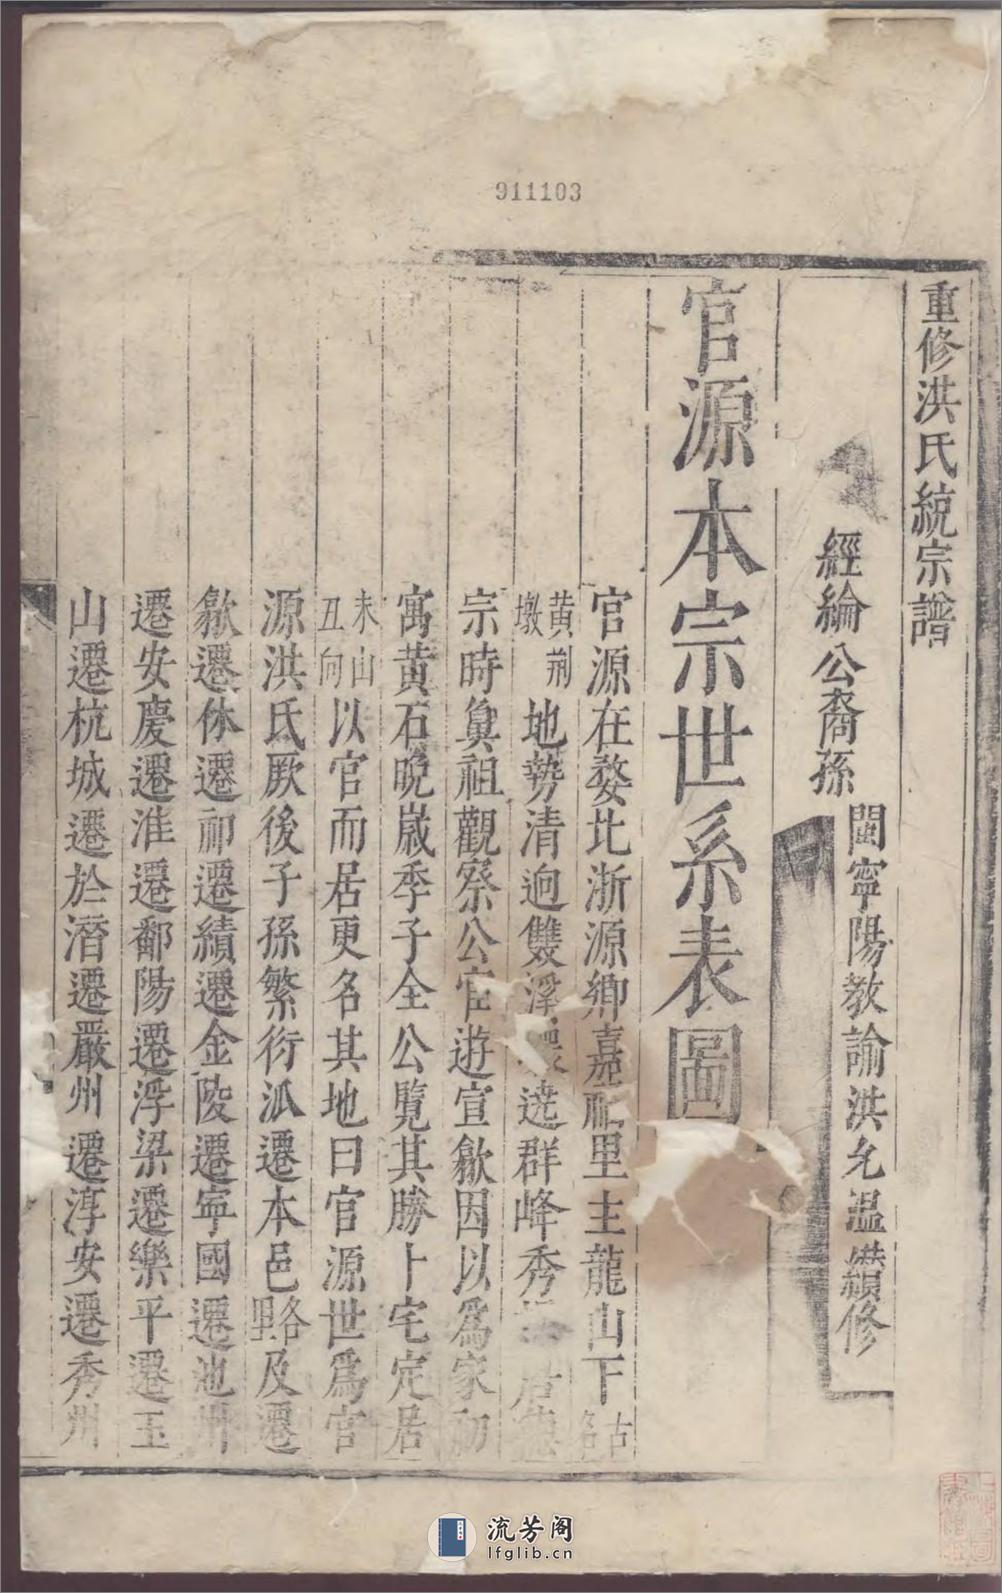 911103
重修洪氏統宗譜
經綸公裔孫 閩寧陽教諭洪允溫纘修
官源本宗世系表圖
官源在婺北浙源鄉嘉福里主龍山下古名
黃荊墩地勢清迥雙溪遶群峰秀居
宗時鼻祖觀察公宦遊宣歙因以爲家初
寓黃石晚歲季子全公覽其勝卜宅定居
未山丑向以官而居更名其地曰官源世爲官
源洪氏厥後子孫繁衍派遷本邑各里及遷
歙遷休遷祁遷績遷金陵遷寧國遷池州
遷安慶遷淮遷鄱陽遷浮梁遷樂平遷玉
山遷杭城遷於潛遷嚴州遷淳安遷秀州
流芳阁
lfglib.cn